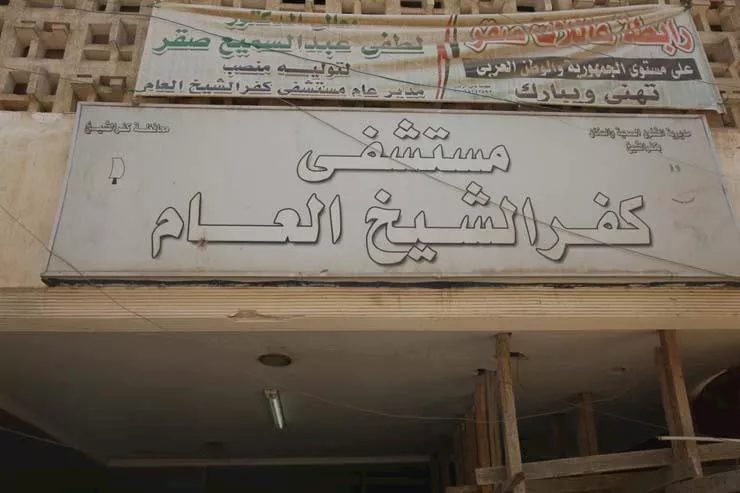 رابطة عائلات صقر
على مستوى الجمهورية والوطن العربى
تهنى ويبارك
الدكتور
لطفى عبدالسميع صقر
لتوليه منصب
مدير عام مستشفى كفرالشيخ العام
مديرية الشئون الصحية والسكان
بكفرالشيخ
محافظة كفرالشيخ
مستشفى
كفرالشيخ العام